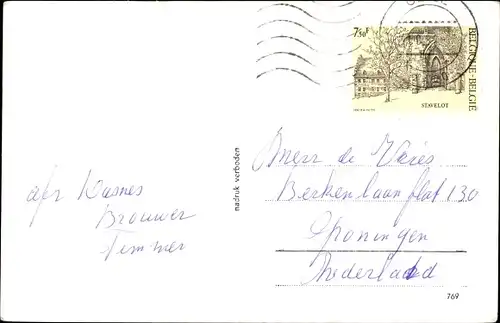 7,50F
BELGIQUE-BELGIË
STAVELOT
nadruk verboden
Mevr de Vries
Berkenlaan flat 130
Groningen
Nederland
afr
Brouwer
Temmer
769